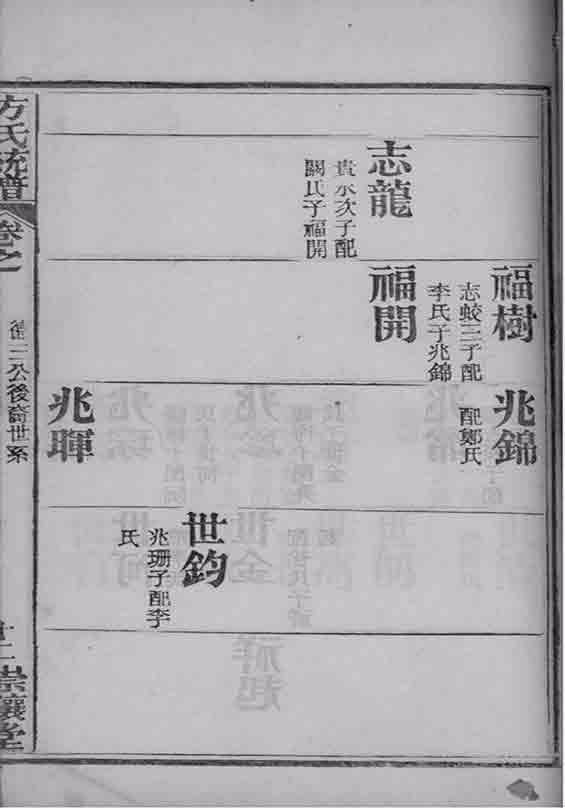 志龍
貴永次子配
關氏子福開
福樹
志蛟三子配
李氏子兆錦
福開
兆錦
配鄭氏
兆暉
世鈞
兆珊子配李
氏
方氏統譜
卷之
公後裔世系
崇讓堂